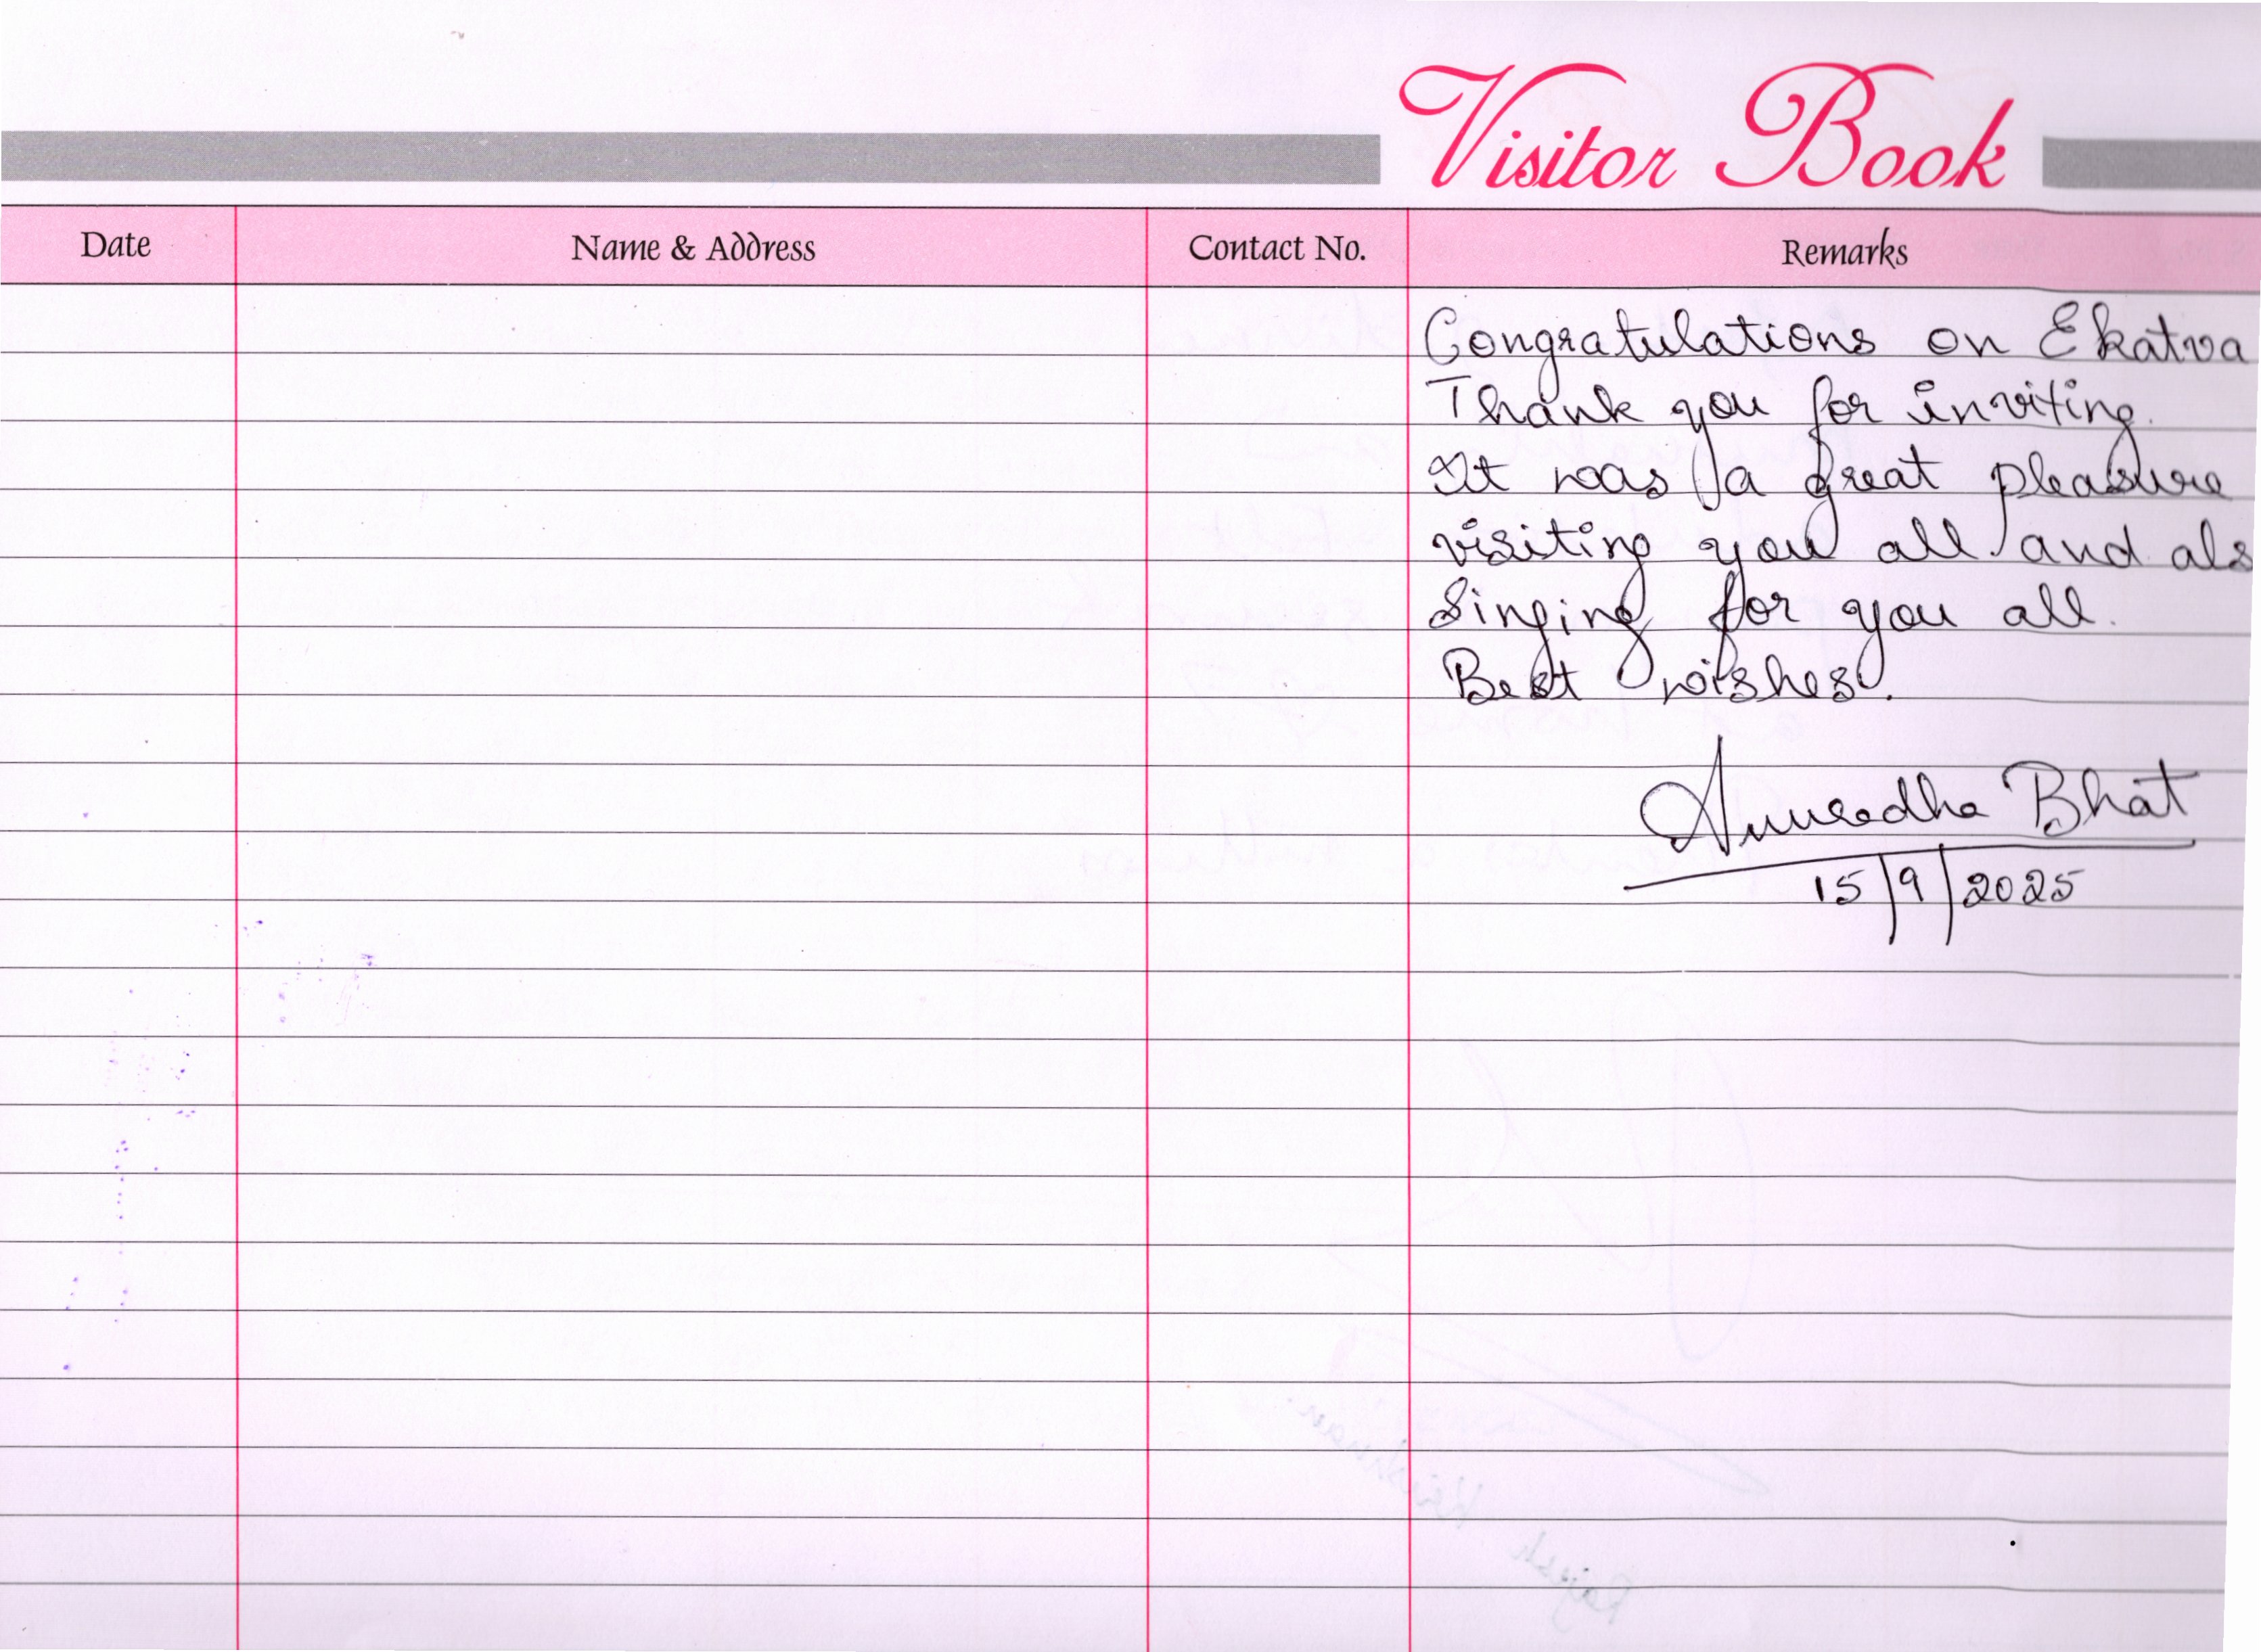 Visitor Book
Date Name & Address Contact No. Remarks
Congratulations on Ekatva
Thank you for inviting.
It was a great pleasure
visiting you all and als
Singing for you all.
Best wishes.
Anuradha Bhat
15/9/2025